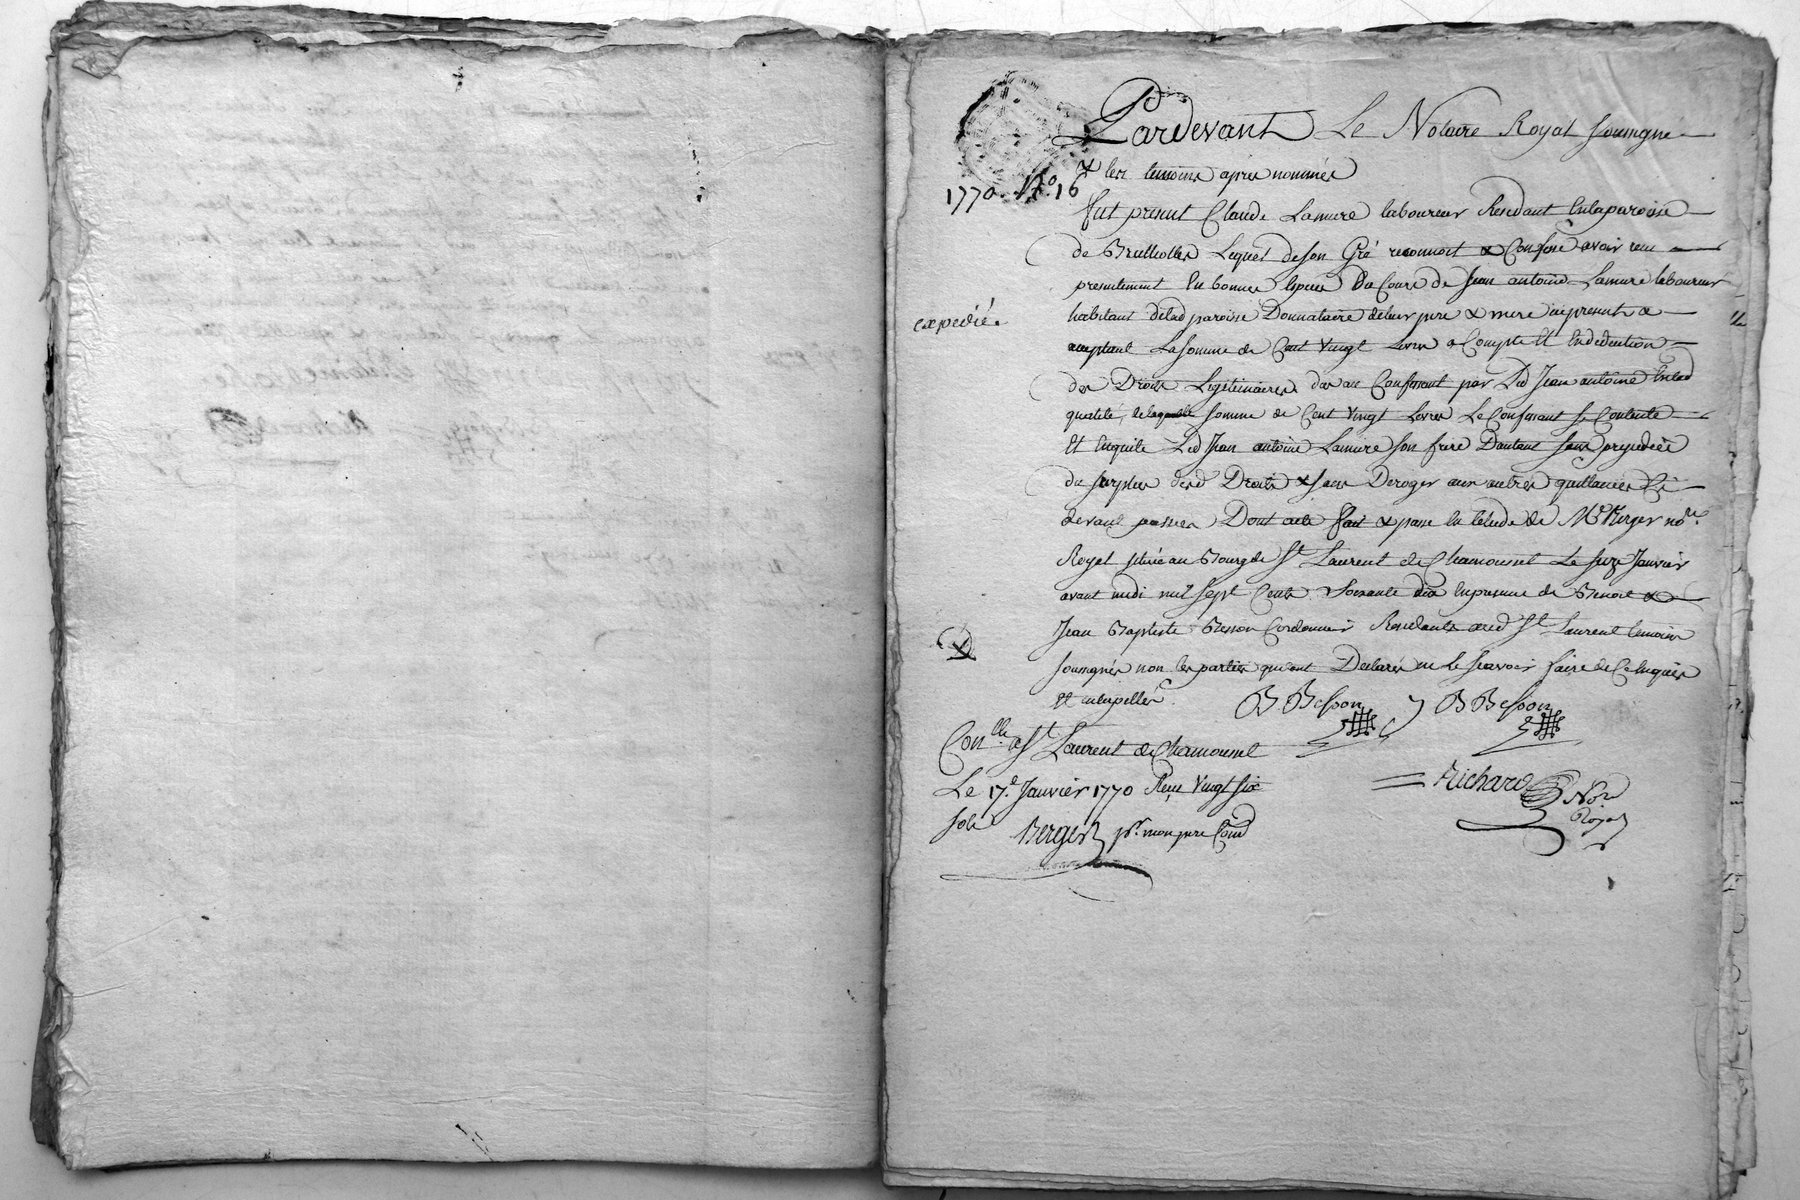 Pardevant Le Notaire Royal soussigné
& les temoins apres nommés
1770. N.º 16
fut present Claude Lamure laboureur Residant en la paroisse
de Brullioles Lequel de son Gré reconnoit & Confesse avoir reçu
presentement En bonnes Especes Du Cours de Jean antoine Lamure laboureur
habitant de lad paroisse Donnataire de leurs pere & mere icy present &
expedié.
acceptant La somme de Cent Vingt Livres a Compte Et En deduction
des Droits Legitimaires dus au Confessant par Led Jean antoine En lad
qualité, de laquelle somme de Cent Vingt Livres Le Confessant se Contente
Et En quite Led Jean antoine Lamure son frere D'autant sans prejudice
du surplus desd Droits & sans Deroger aux autres quittances Cy
devant passées, Dont acte fait & passé En l'étude de Mᵉ Berger noʳᵉ
Royal située au Bourg de Sᵗ Laurent de Chamousset Le seize Janvier
avant midi mil sept Cents Soixante dix En presence de Benoit &
Jean Baptiste Besson Cordonniers Residants aud Sᵗ Laurent temoins
soussignés non les parties qui ont Declarés ne le sçavoir faire de Ce Enquis
Et interpellés.
B. Besson J B Besson
Conˡˡᵉ a Sᵗ Laurent de Chamousset
Le 17.ᵉ Janvier 1770 Reçu Vingt six
sols
Berger pʳ. mon pere Comᵈ
Richard Noʳᵉ
Royal